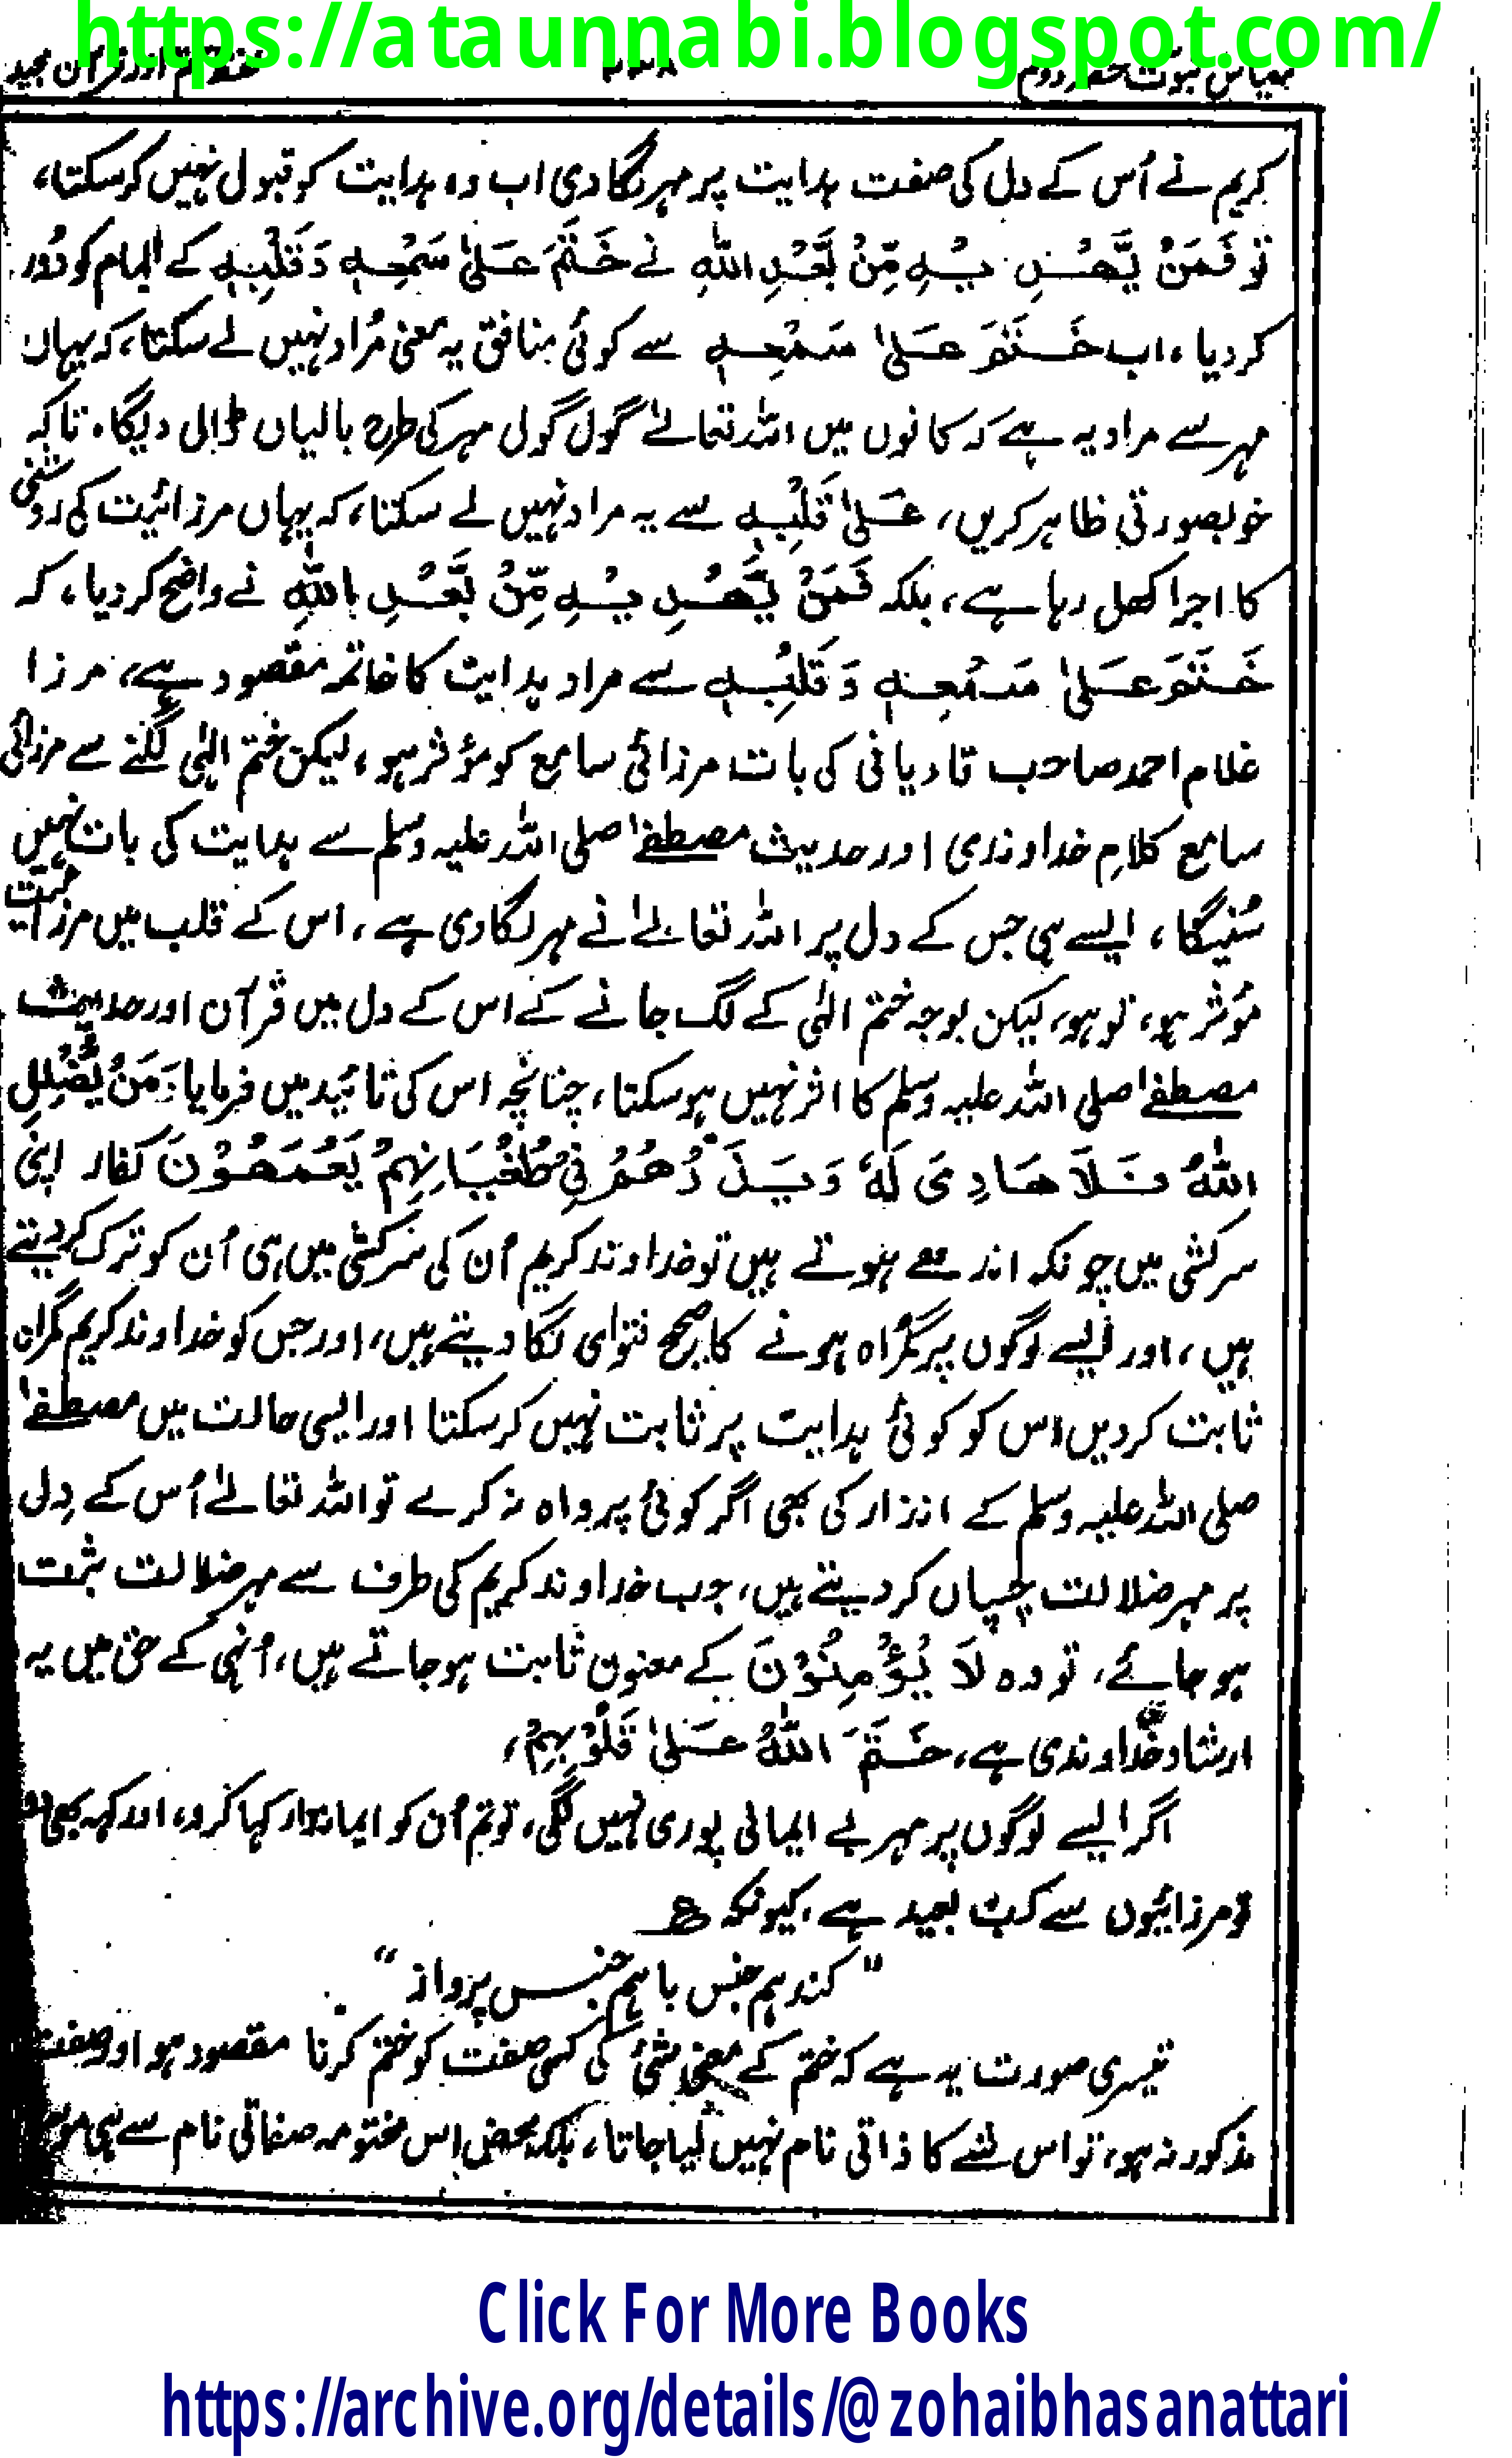 https://ataunnabi.blogspot.com/
مقیاس نبوّت حصہ دوم
۲۳۸
ختم اور قرآن مجید
کریم نے اُس کے دل کی صفت ہدایت پر مہر لگا دی اب وہ ہدایت کو قبول نہیں کر سکتا،
تو فَمَنْ يَّهْدِيْهِ مِنْ بَعْدِ اللّٰهِ نے خَتَمَ عَلٰی سَمْعِهٖ وَقَلْبِهٖ کے ابہام کو دُور
کر دیا، اب خَتَمَ عَلٰی سَمْعِهٖ سے کوئی منافق یہ معنی مُراد نہیں لے سکتا، کہ یہاں
مہر سے مراد یہ ہے کہ کانوں میں اللہ تعالےٰ گول گولی مہر کی طرح بالیاں ڈالی دیگا۔ تاکہ
خوبصورتی ظاہر کریں، عَلٰی قَلْبِهٖ سے یہ مراد نہیں لے سکتا، کہ یہاں مرزائیت کی روشنی
کا اجرا کھل رہا ہے، بلکہ فَمَنْ يَّهْدِيْهِ مِّنْ بَّعْدِ اللّٰهِ نے واضح کر دیا، کہ
خَتَمَ عَلٰی سَمْعِهٖ وَ قَلْبِهٖ سے مراد ہدایت کا خاتمہ مقصود ہے، مرزا
غلام احمد صاحب قادیانی کی بات مرزائی سامع کو مؤثر ہو، لیکن ختم الٰہی لگنے سے مرزائی
سامع کلامِ خداوندی اور حدیث مصطفےٰ صلی اللہ علیہ وسلم سے ہدایت کی بات نہیں
سُنیگا، ایسے ہی جس کے دل پر اللہ تعالےٰ نے مہر لگا دی ہے، اس کے قلب میں مرزائیت
مؤثر ہو، تو ہو، لیکن بوجہ ختم الٰہی کے لگ جانے کے اس کے دل میں قرآن اور حدیث
مصطفےٰ صلی اللہ علیہ وسلم کا اثر نہیں ہو سکتا، چنانچہ اس کی تائید میں فرمایا وَمَنْ يُّضْلِلِ
اللّٰهُ فَلَا هَادِيَ لَهٗ وَيَذَرُهُمْ فِيْ طُغْيَانِهِمْ يَعْمَهُوْنَ کفار اپنی
سرکشی میں چونکہ اندھے ہوتے ہیں تو خداوند کریم اُن کی سرکشی میں ہی اُن کو ترک کر دیتے
ہیں، اور ایسے لوگوں پر گمراہ ہونے کا صحیح فتوٰی لگا دیتے ہیں، اور جس کو خداوند کریم گمراہ
ثابت کر دیں اس کو کوئی ہدایت پر ثابت نہیں کر سکتا اور ایسی حالت میں مصطفےٰ
صلی اللہ علیہ وسلم کے انذار کی بھی اگر کوئی پرواہ نہ کرے تو اللہ تعالےٰ اُس کے دِل
پر مہر ضلالت چسپاں کر دیتے ہیں، جب خداوند کریم کی طرف سے مہر ضلالت ثبت
ہو جائے، تو وہ لَا يُؤْمِنُوْنَ کے معنون ثابت ہو جاتے ہیں، اُنہی کے حق میں یہ
ارشاد خداوندی ہے، خَتَمَ اللّٰهُ عَلٰی قُلُوْبِهِمْ،
اگر ایسے لوگوں پر مہر بے ایمانی پوری نہیں لگی، تو تم اُن کو ایماندار کہا کرو، اور کہہ بھی دو
تو مرزائیوں سے کب بعید ہے، کیونکہ ع
"کند ہم جنس با ہم جنس پرواز"
تیسری صورت یہ ہے کہ ختم کے معنی شئ کی کسی صفت کو ختم کرنا مقصود ہو اور صفت
مذکور نہ ہو، تو اس شے کا ذاتی نام نہیں لیا جاتا، بلکہ محض اس مختومہ صفاتی نام سے ہی
Click For More Books
https://archive.org/details/@zohaibhasanattari